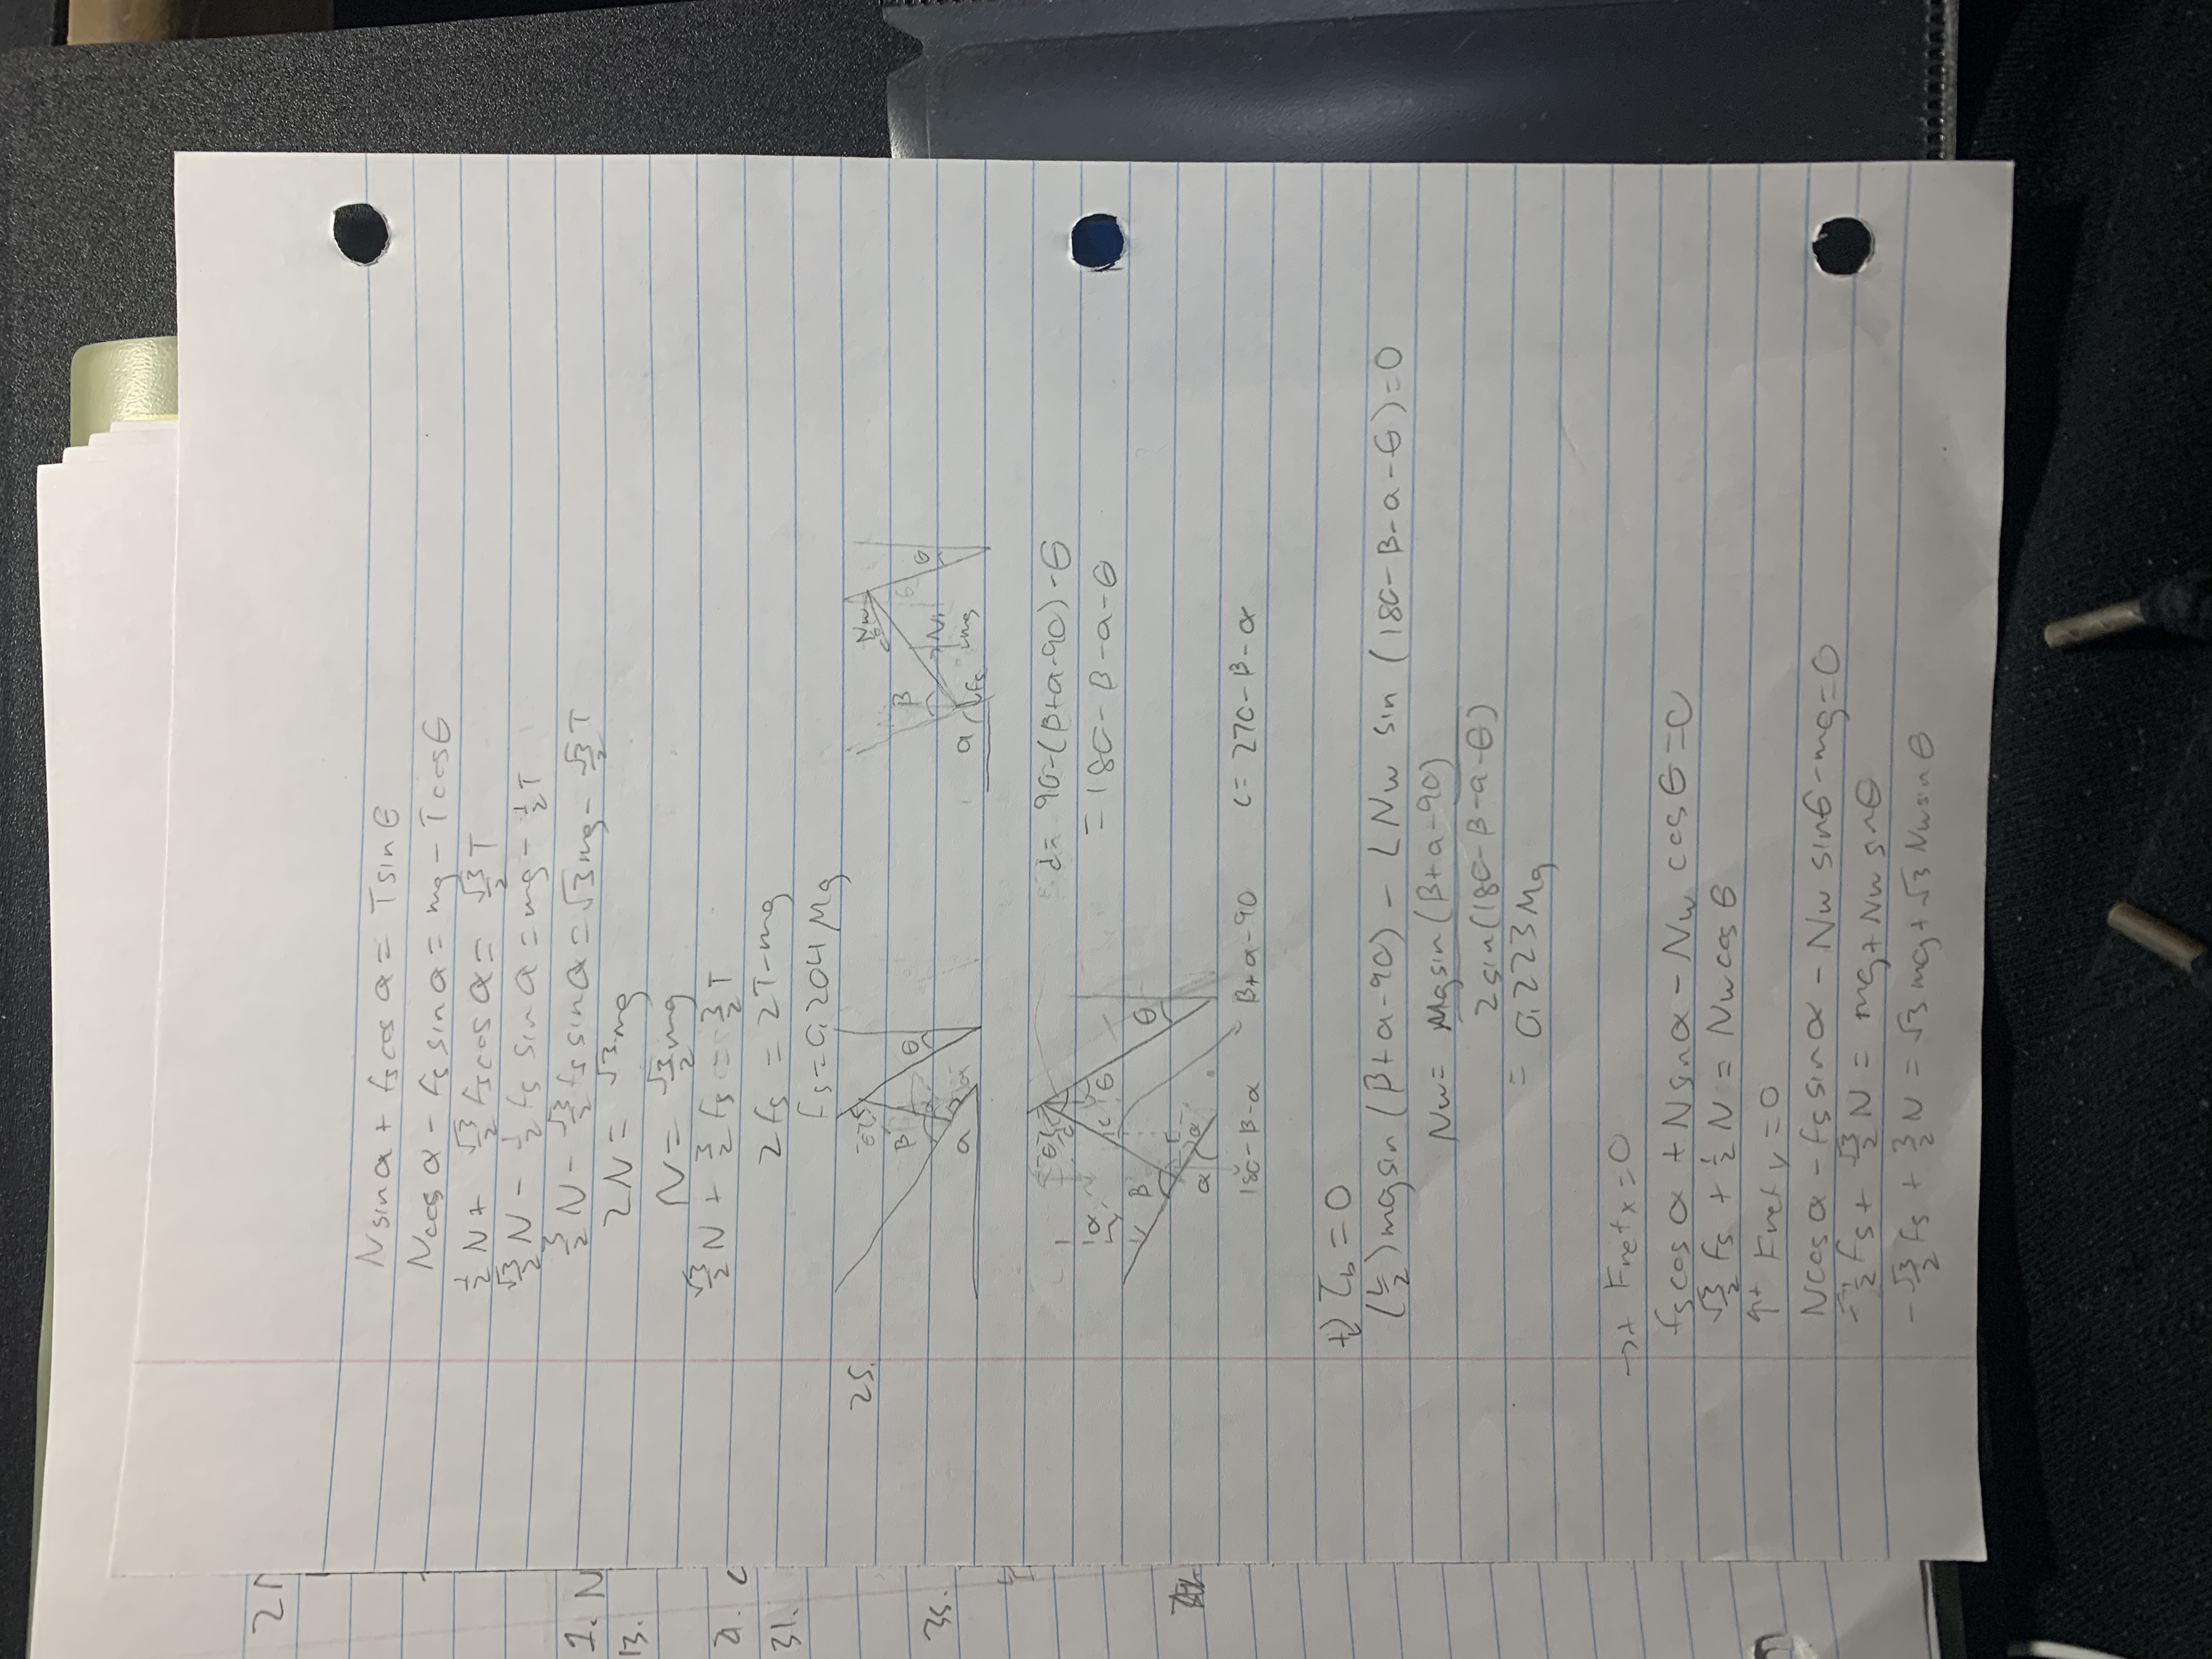 2N
1. N
13.
31.
35.
N sin α + fs cos α = T sin θ
N cos α - fs sin α = mg - T cos θ
1/2 N + √3/2 fs cos α = √3/2 T
√3/2 N - 1/2 fs sin α = mg - 1/2 T
3/2 N - √3/2 fs sin α = √3 mg - √3/2 T
2N = √3 mg
N = √3/2 mg
√3/2 N + 3/2 fs = 3/2 T
2fs = 2T - mg
fs = 0.204 Mg
25.
β
θ
α
α
Nw
θ
β
θ
θ
N
α
fs
mg
d = 90 - (β + α - 90) - θ
= 180 - β - α - θ
α
c
θ
β
θ
α
α
180 - β - α
β + α - 90
c = 270 - β - α
+ τb = 0
(L/2) mg sin (β + α - 90) - L Nw sin (180 - β - α - θ) = 0
Nw = Mg sin (β + α - 90)
2 sin (180 - β - α - θ)
= 0.223 Mg
→+ Fnet x = 0
fs cos α + N sin α - Nw cos θ = 0
√3/2 fs + 1/2 N = Nw cos θ
↑+ Fnet y = 0
N cos α - fs sin α - Nw sin θ - mg = 0
-1/2 fs + √3/2 N = mg + Nw sin θ
-√3/2 fs + 3/2 N = √3 mg + √3 Nw sin θ